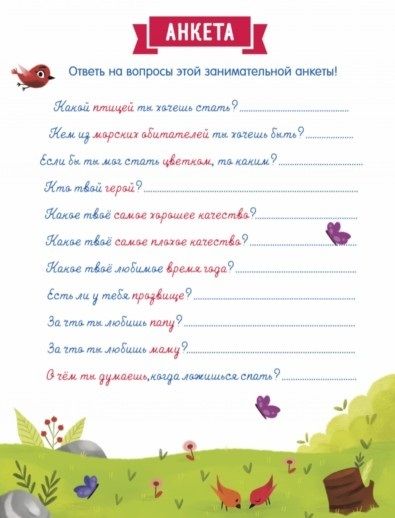 АНКЕТА
Ответь на вопросы этой занимательной анкеты!
Какой птицей ты хочешь стать?
Кем из морских обитателей ты хочешь быть?
Если бы ты мог стать цветком, то каким?
Кто твой герой?
Какое твоё самое хорошее качество?
Какое твоё самое плохое качество?
Какое твоё любимое время года?
Есть ли у тебя прозвище?
За что ты любишь папу?
За что ты любишь маму?
О чём ты думаешь, когда ложишься спать?